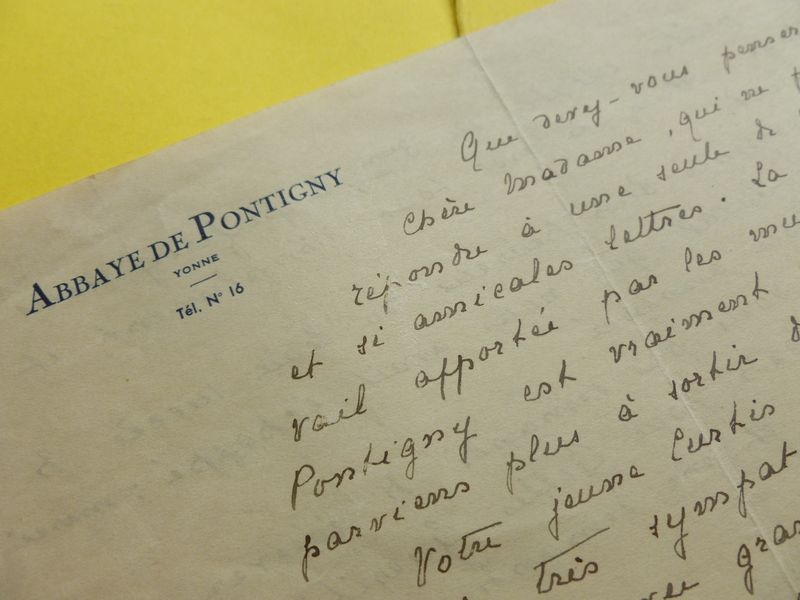 ABBAYE DE PONTIGNY
YONNE
Tél. N° 16
Que devez-vous penser
chère Madame, qui ne
répondre à une seule de
et si amicales lettres. La
vail apportée par les
Pontigny est vraiment
parviens plus à sortir
Votre jeune Curtis
très sympat